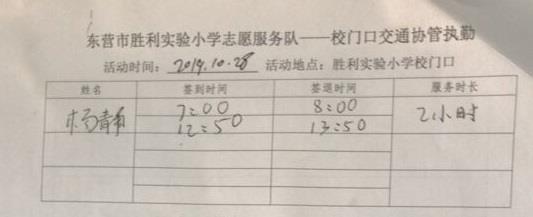 东营市胜利实验小学志愿服务队——校门口交通协管执勤
活动时间：2019.10.28 活动地点：胜利实验小学校门口
姓名 签到时间 签退时间 服务时长
杨静 7:00 8:00 2小时
12:50 13:50